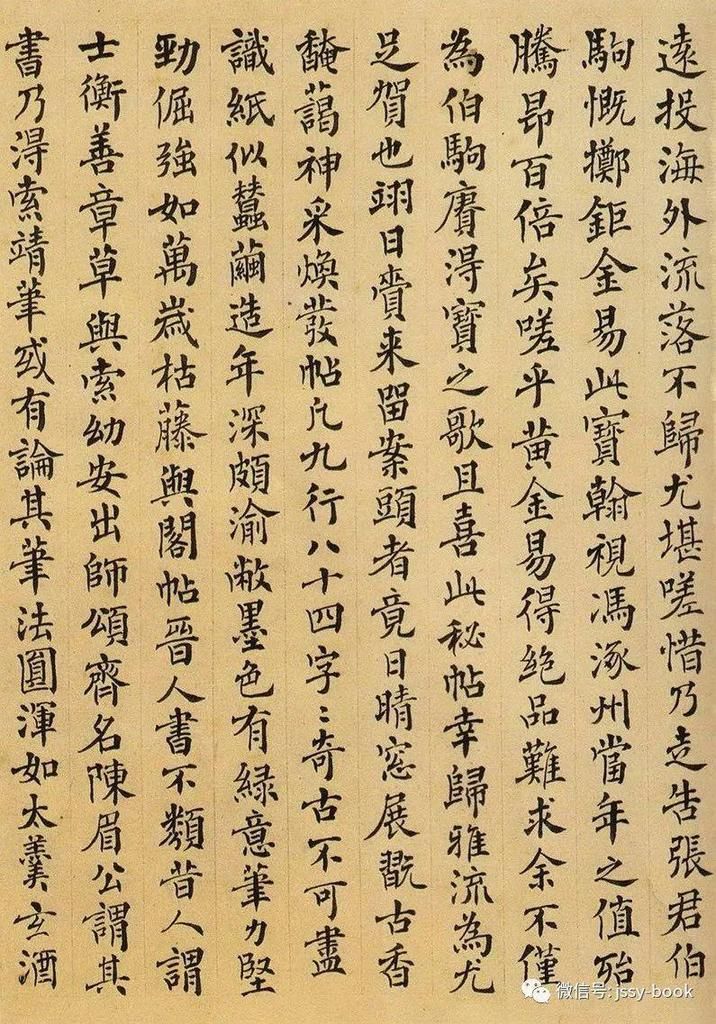 遠投海外流落不歸尤堪嗟惜乃走告張君伯
駒慨擲鉅金易此寶翰視馮涿州當年之值殆
騰昂百倍矣嗟乎黃金易得絶品難求余不僅
為伯駒賡淂寶之歌且喜此秘帖幸歸雅流為尤
足賀也翊日賷来畱案頭者竟日晴窓展翫古香
馣藹神采煥發帖凡九行八十四字〻奇古不可盡
識紙似蠶繭造年深頗渝敝墨色有緑意筆力堅
勁倔強如萬歲枯藤與閣帖晉人書不類昔人謂
士衡善章草與索幼安出師頌齊名陳眉公謂其
書乃淂索靖筆或有論其筆法圓渾如太羹玄酒
微信号: jssy-book